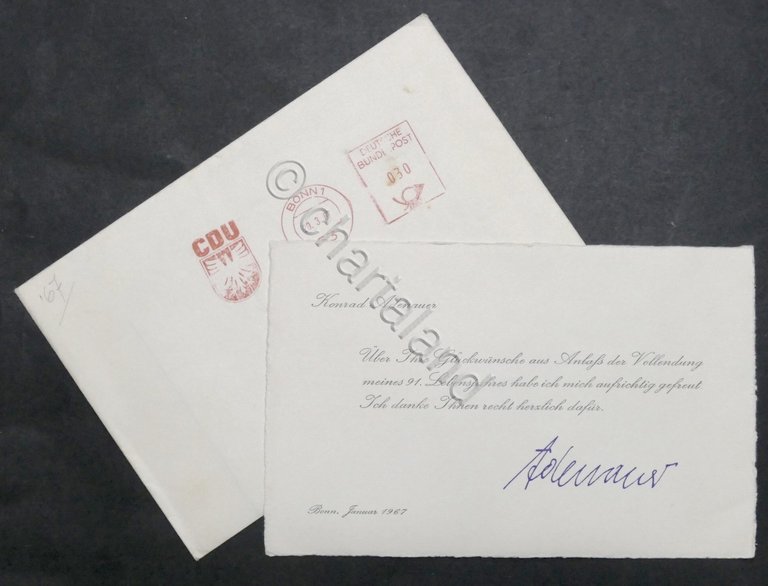 DEUTSCHE
BUNDESPOST
030
BONN 1
CDU
'67
© chartaland
Konrad Adenauer
Über Ihre Glückwünsche aus Anlaß der Vollendung
meines 91. Lebensjahres habe ich mich aufrichtig gefreut
Ich danke Ihnen recht herzlich dafür.
Adenauer
Bonn, Januar 1967